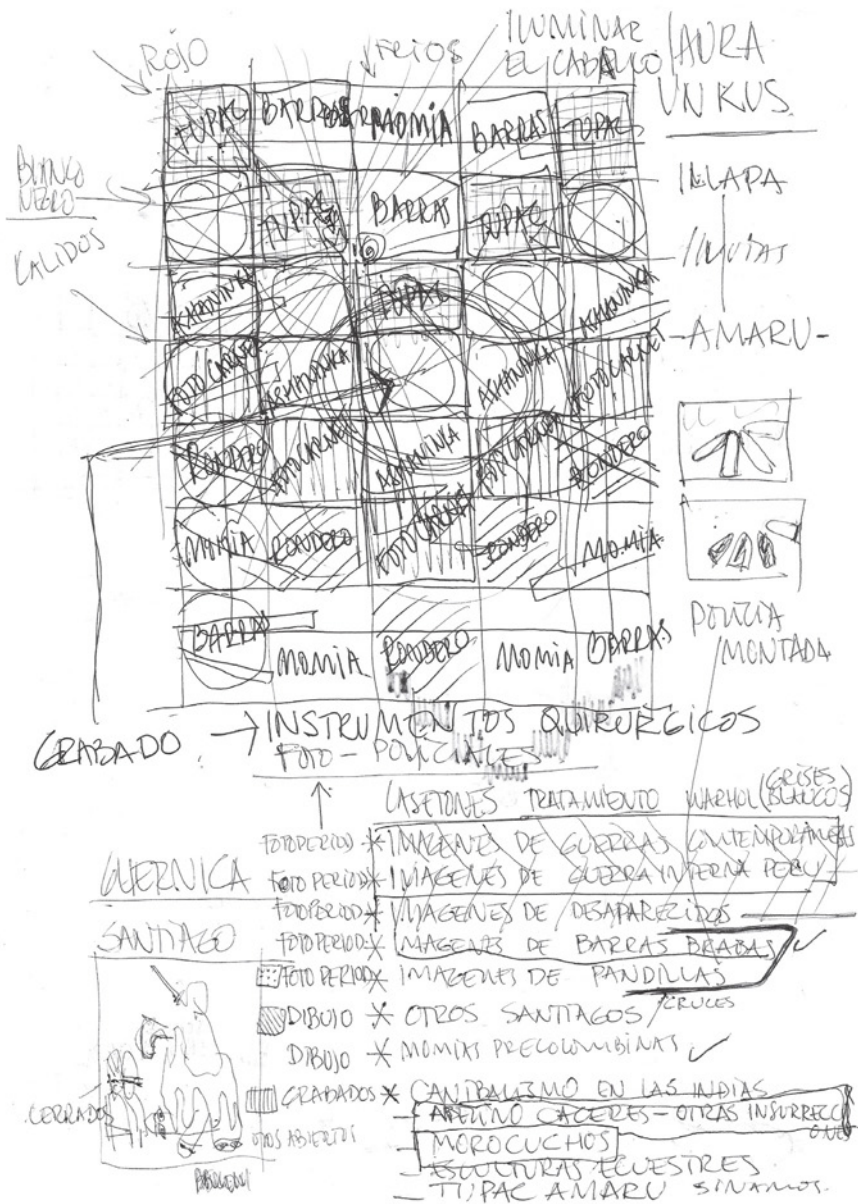 ROJO
FRIOS
ILUMINAR
EL CABALLO
AURA
UNKUS
BLANCO
NEGRO
CALIDOS
TUPAC BARRAS MOMIA BARRAS TUPAC
TUPAC BARRAS TUPAC
ASHANINKA TUPAC ASHANINKA
FOTO CARNET ASHANINKA ASHANINKA FOTO CARNET
RONDERO FOTO CARNET ASHANINKA FOTO CARNET RONDERO
MOMIA RONDERO FOTO CARNET RONDERO MOMIA
BARRAS MOMIA RONDERO MOMIA BARRAS
ILLAPA
-AMARU-
POLICIA
MONTADA
GRABADO → INSTRUMENTOS QUIRURGICOS
FOTO - POLICIALES
CASETONES TRATAMIENTO WARHOL (GRISES
BLANCOS)
FOTOPERIOD * IMAGENES DE GUERRAS CONTEMPORANEAS
FOTO PERIOD * IMAGENES DE GUERRA INTERNA PERU
FOTOPERIOD * IMAGENES DE DESAPARECIDOS
FOTOPERIOD * IMAGENES DE BARRAS BRABAS ✓
FOTO PERIOD * IMAGENES DE PANDILLAS
DIBUJO * OTROS SANTIAGOS / CRUCES
DIBUJO * MOMIAS PRECOLOMBINAS ✓
GRABADOS * CANIBALISMO EN LAS INDIAS
CACERES - OTRAS INSURRECCIONES
MOROCUCHOS
ESCULTURAS ECUESTRES
TUPAC AMARU SINAMOS.
GUERNICA
SANTIAGO
CERRADOS
OJOS ABIERTOS